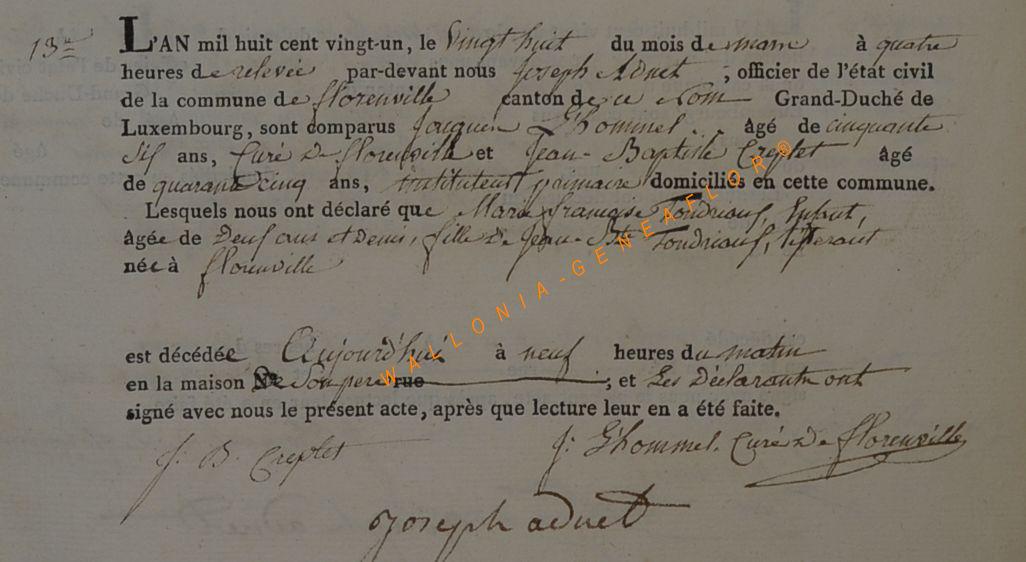 13e L'AN mil huit cent vingt-un, le Vingt huit du mois de mars à quatre
heures de relevée par-devant nous Joseph Adnet ; officier de l'état civil
de la commune de florenville canton de ce Nom Grand-Duché de
Luxembourg, sont comparus L'hommel... âgé de cinquante
Six ans, Curé De florenville et Jean-Baptiste Creplet âgé
de quarante cinq ans, instituteur primaire domiciliés en cette commune.
Lesquels nous ont déclaré que Marie françoise Tondrieaux, Enfant,
âgée de Deux ans et Demi, fille De Jean-Bte Tondrieaux, tisserant
née à florenville
est décédée Aujourd'hui à neuf heures du matin
en la maison De Son pere rue ; et Les Déclarants ont
signé avec nous le présent acte, après que lecture leur en a été faite.
J. B. Creplet
J. L'hommel. Curé De florenville
Joseph adnet
WALLONIA-GENEAFLOR®